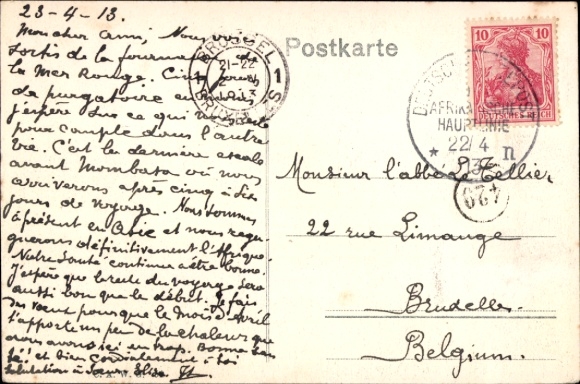 23-4-13.
Mon cher ami, Nous voici
sortis de la fournaise de
la Mer Rouge. Cinq jours
de purgatoire en moins
j'espère sur ce qui me reste
pour compte dans l'autre
vie. C'est la dernière escale
avant Mombasa où nous
arriverons après cinq à six
jours de voyage. Nous sommes
à présent en Asie et nous
guerons définitivement l'Afrique
Notre santé continue à être bonne.
J'espère que le reste du voyage sera
aussi bon que le début. Je fais
des voeux pour que le mois d'avril
t'apporte un peu de la chaleur que
nous avons ici en trop. Bonne
et bien cordialement à toi
Salutation à Soeur Elise
Postkarte
BRUSSEL 1
21-22
1913
BRUXELLES
DEUTSCHE SEEPOST
AFRIKANISCHE
HAUPTLINIE
22/4
13
* n
10 10
DEUTSCHES REICH
Monsieur l'abbé Le Tellier
420
22 rue Limauge
Bruxelles
Belgium.